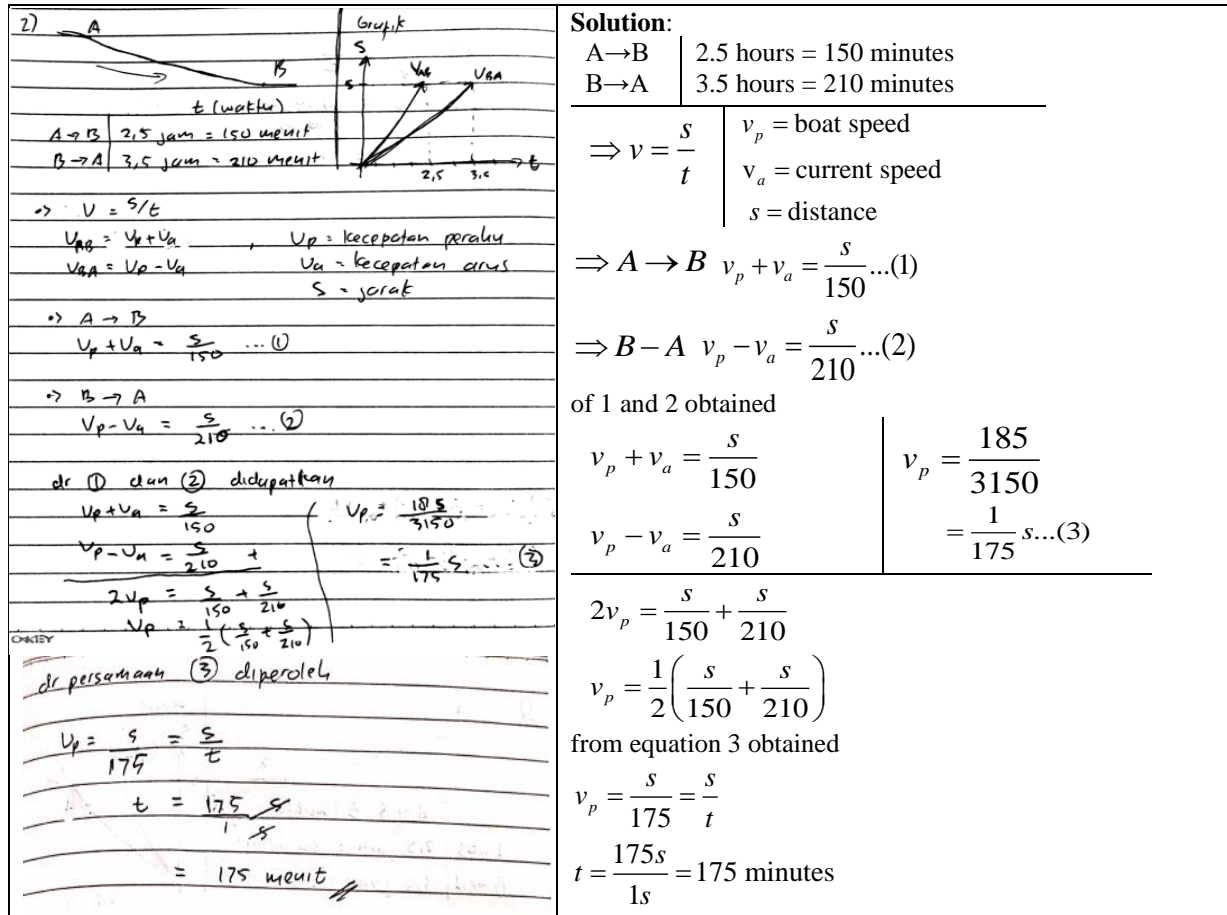 2)
A
B
t (waktu)
A → B | 2,5 jam = 150 menit
B → A | 3,5 jam = 210 menit
Grafik
S
S
V_AB
V_BA
2,5
3,5
t
•> V = S/t
V_AB = Vp + Va , Vp = kecepatan perahu
V_BA = Vp - Va Va = kecepatan arus
S = jarak
•> A → B
Vp + Va = S/150 ... ①
•> B → A
Vp - Va = S/210 ... ②
dr ① dan ② didapatkan
Vp + Va = S/150
Vp - Va = S/210 +
2Vp = S/150 + S/210
Vp = 1/2 (S/150 + S/210)
Vp = 18 S/3150
= 1/175 S .... ③
dr persamaan ③ diperoleh
Vp = S/175 = S/t
t = 175 S/1 S
= 175 menit
Solution:
A→B | 2.5 hours = 150 minutes
B→A | 3.5 hours = 210 minutes
⇒ v = s/t
v_p = boat speed
v_a = current speed
s = distance
⇒ A → B v_p + v_a = s/150 ...(1)
⇒ B − A v_p − v_a = s/210 ...(2)
of 1 and 2 obtained
v_p + v_a = s/150
v_p − v_a = s/210
v_p = 185/3150
= 1/175 s...(3)
2v_p = s/150 + s/210
v_p = 1/2 (s/150 + s/210)
from equation 3 obtained
v_p = s/175 = s/t
t = 175s/1s = 175 minutes